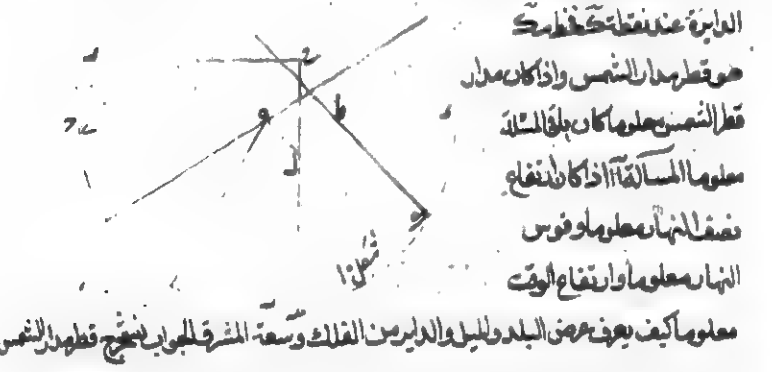 الدايرة عند نقطة ك فخط مك
هو قطر مدار الشمس واذا كان مدار
قطر الشمس معلوما كان باقى المسئلة
معلوما المسألة آا اذا كان ارتفاع
نصف النهار معلوما وقوس
النهار معلوما وارتفاع الوقت
شكل ١٠
معلوما كيف يعرف عرض البلد والميل والداير من الفلك وسعة المشرق الجواب نستخرج قطر مدار الشمس